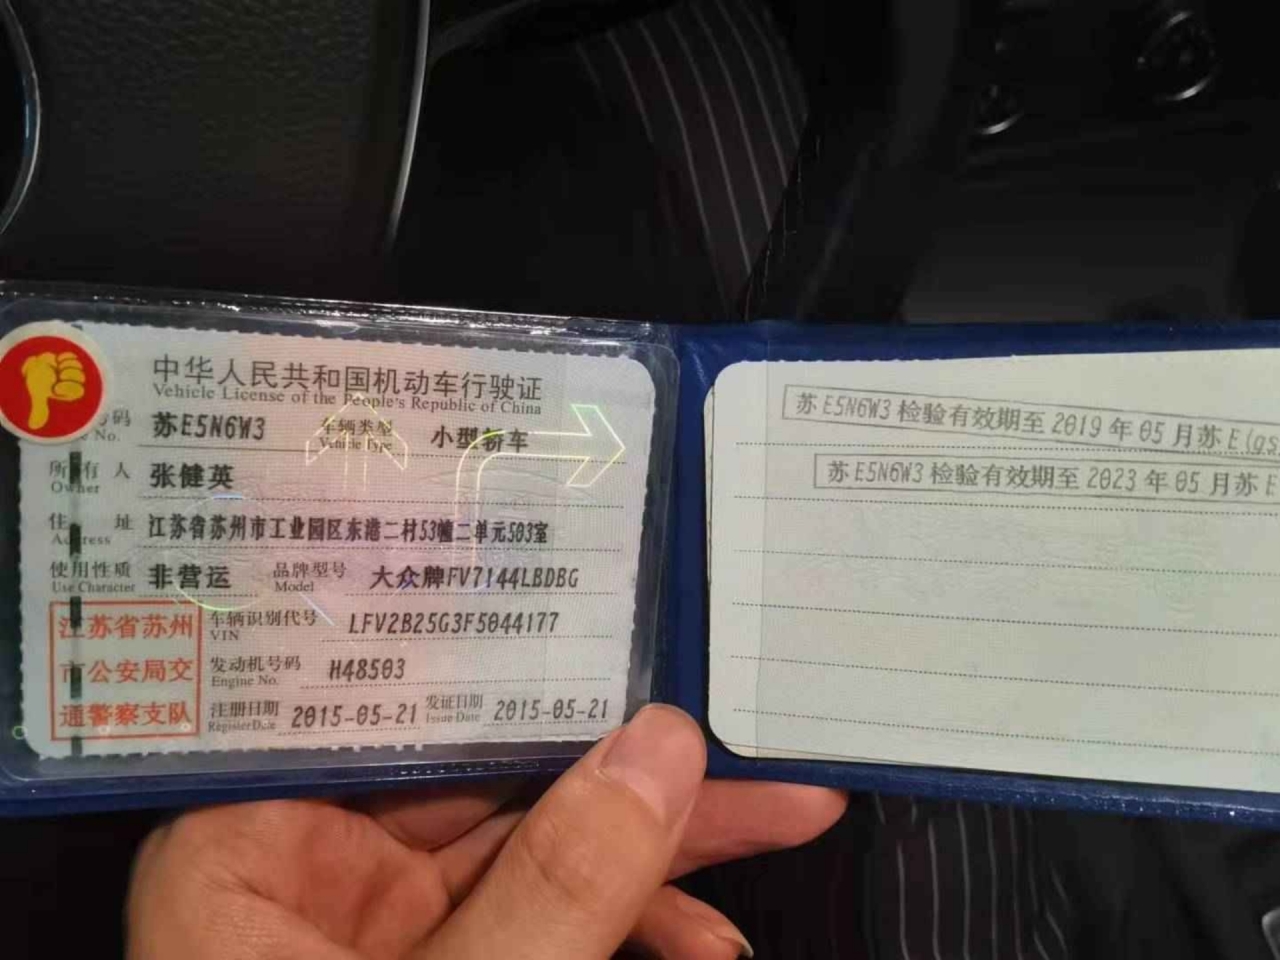 中华人民共和国机动车行驶证
Vehicle License of the People's Republic of China
号码 苏E5N6W3 车辆类型 小型轿车
No. Vehicle Type
所有人 张健英
Owner
住址 江苏省苏州市工业园区东港二村53幢二单元503室
Address
使用性质 非营运 品牌型号 大众牌FV7144LBDBG
Use Character Model
江苏省苏州
市公安局交
通警察支队
车辆识别代号 LFV2B25G3F5044177
VIN
发动机号码 H48503
Engine No.
注册日期 2015-05-21 发证日期 2015-05-21
Register Date Issue Date
苏E5N6W3 检验有效期至 2019 年 05 月苏E(gs
苏E5N6W3 检验有效期至 2023 年 05 月苏E